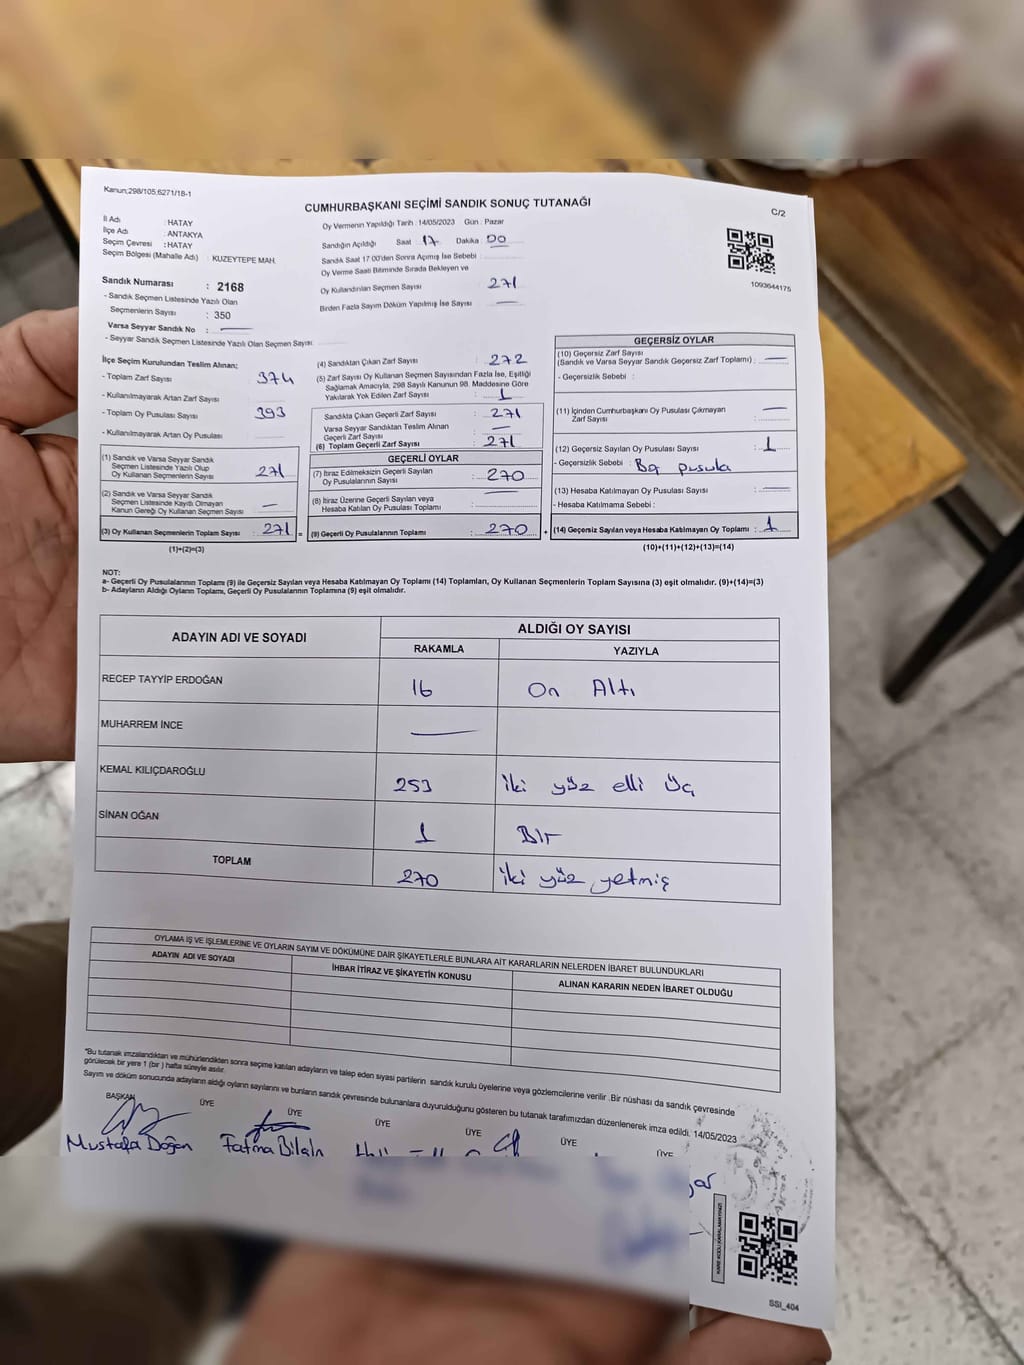 Kanun;298/105,6271/18-1
CUMHURBAŞKANI SEÇİMİ SANDIK SONUÇ TUTANAĞI
C/2
İl Adı : HATAY
İlçe Adı : ANTAKYA
Seçim Çevresi : HATAY
Seçim Bölgesi (Mahalle Adı) : KUZEYTEPE MAH.
Oy Vermenin Yapıldığı Tarih : 14/05/2023 Gün : Pazar
Sandığın Açıldığı Saat : 17 Dakika : 00
Sandık Saat 17:00'den Sonra Açımış İse Sebebi :
Oy Verme Saati Bitiminde Sırada Bekleyen ve
Oy Kullandırılan Seçmen Sayısı : 271
Birden Fazla Sayım Döküm Yapılmış İse Sayısı : —
1093644175
Sandık Numarası : 2168
- Sandık Seçmen Listesinde Yazılı Olan
Seçmenlerin Sayısı : 350
Varsa Seyyar Sandık No : —
- Seyyar Sandık Seçmen Listesinde Yazılı Olan Seçmen Sayısı
İlçe Seçim Kurulundan Teslim Alınan;
- Toplam Zarf Sayısı 374
- Kullanılmayarak Artan Zarf Sayısı
- Toplam Oy Pusulası Sayısı 393
- Kullanılmayarak Artan Oy Pusulası
(1) Sandık ve Varsa Seyyar Sandık
Seçmen Listesinde Yazılı Olup
Oy Kullanan Seçmenlerin Sayısı : 271
(2) Sandık ve Varsa Seyyar Sandık
Seçmen Listesinde Kayıtlı Olmayan
Kanun Gereği Oy Kullanan Seçmen Sayısı : —
(3) Oy Kullanan Seçmenlerin Toplam Sayısı : 271 =
(1)+(2)=(3)
(4) Sandıktan Çıkan Zarf Sayısı : 272
(5) Zarf Sayısı Oy Kullanan Seçmen Sayısından Fazla İse, Eşitliği
Sağlamak Amacıyla, 298 Sayılı Kanunun 98. Maddesine Göre
Yakılarak Yok Edilen Zarf Sayısı : 1
Sandıkta Çıkan Geçerli Zarf Sayısı : 271
Varsa Seyyar Sandıktan Teslim Alınan
Geçerli Zarf Sayısı : —
(6) Toplam Geçerli Zarf Sayısı : 271
GEÇERLİ OYLAR
(7) İtiraz Edilmeksizin Geçerli Sayılan
Oy Pusulalarının Sayısı : 270
(8) İtiraz Üzerine Geçerli Sayılan veya
Hesaba Katılan Oy Pusulası Toplamı : —
(9) Geçerli Oy Pusulalarının Toplamı : 270 +
GEÇERSİZ OYLAR
(10) Geçersiz Zarf Sayısı
(Sandık ve Varsa Seyyar Sandık Geçersiz Zarf Toplamı) : —
- Geçersizlik Sebebi :
(11) İçinden Cumhurbaşkanı Oy Pusulası Çıkmayan
Zarf Sayısı : —
(12) Geçersiz Sayılan Oy Pusulası Sayısı : 1
- Geçersizlik Sebebi : Boş pusula
(13) Hesaba Katılmayan Oy Pusulası Sayısı : —
- Hesaba Katılmama Sebebi :
(14) Geçersiz Sayılan veya Hesaba Katılmayan Oy Toplamı : 1
(10)+(11)+(12)+(13)=(14)
NOT:
a- Geçerli Oy Pusulalarının Toplamı (9) ile Geçersiz Sayılan veya Hesaba Katılmayan Oy Toplamı (14) Toplamları, Oy Kullanan Seçmenlerin Toplam Sayısına (3) eşit olmalıdır. (9)+(14)=(3)
b- Adayların Aldığı Oyların Toplamı, Geçerli Oy Pusulalarının Toplamına (9) eşit olmalıdır.
ADAYIN ADI VE SOYADI
ALDIĞI OY SAYISI
RAKAMLA YAZIYLA
RECEP TAYYİP ERDOĞAN 16 On Altı
MUHARREM İNCE —
KEMAL KILIÇDAROĞLU 253 İki yüz elli Üç
SİNAN OĞAN 1 Bir
TOPLAM 270 İki yüz yetmiş
OYLAMA İŞ VE İŞLEMLERİNE VE OYLARIN SAYIM VE DÖKÜMÜNE DAİR ŞİKAYETLERLE BUNLARA AİT KARARLARIN NELERDEN İBARET BULUNDUKLARI
ADAYIN ADI VE SOYADI İHBAR İTİRAZ VE ŞİKAYETİN KONUSU ALINAN KARARIN NEDEN İBARET OLDUĞU
"Bu tutanak imzalandıktan ve mühürlendikten sonra seçime katılan adayların ve talep eden siyasi partilerin sandık kurulu üyelerine veya gözlemcilerine verilir .Bir nüshası da sandık çevresinde
görülecek bir yere 1 (bir ) hafta süreyle asılır.
Sayım ve döküm sonucunda adayların aldığı oyların sayılarını ve bunların sandık çevresinde bulunanlara duyurulduğunu gösteren bu tutanak tarafımızdan düzenlenerek imza edildi. 14/05/2023
BAŞKAN ÜYE ÜYE ÜYE ÜYE ÜYE ÜYE
Mustafa Doğan Fatma Bilgin
KARE KODU KARALAMAYINIZ!
SSI_404